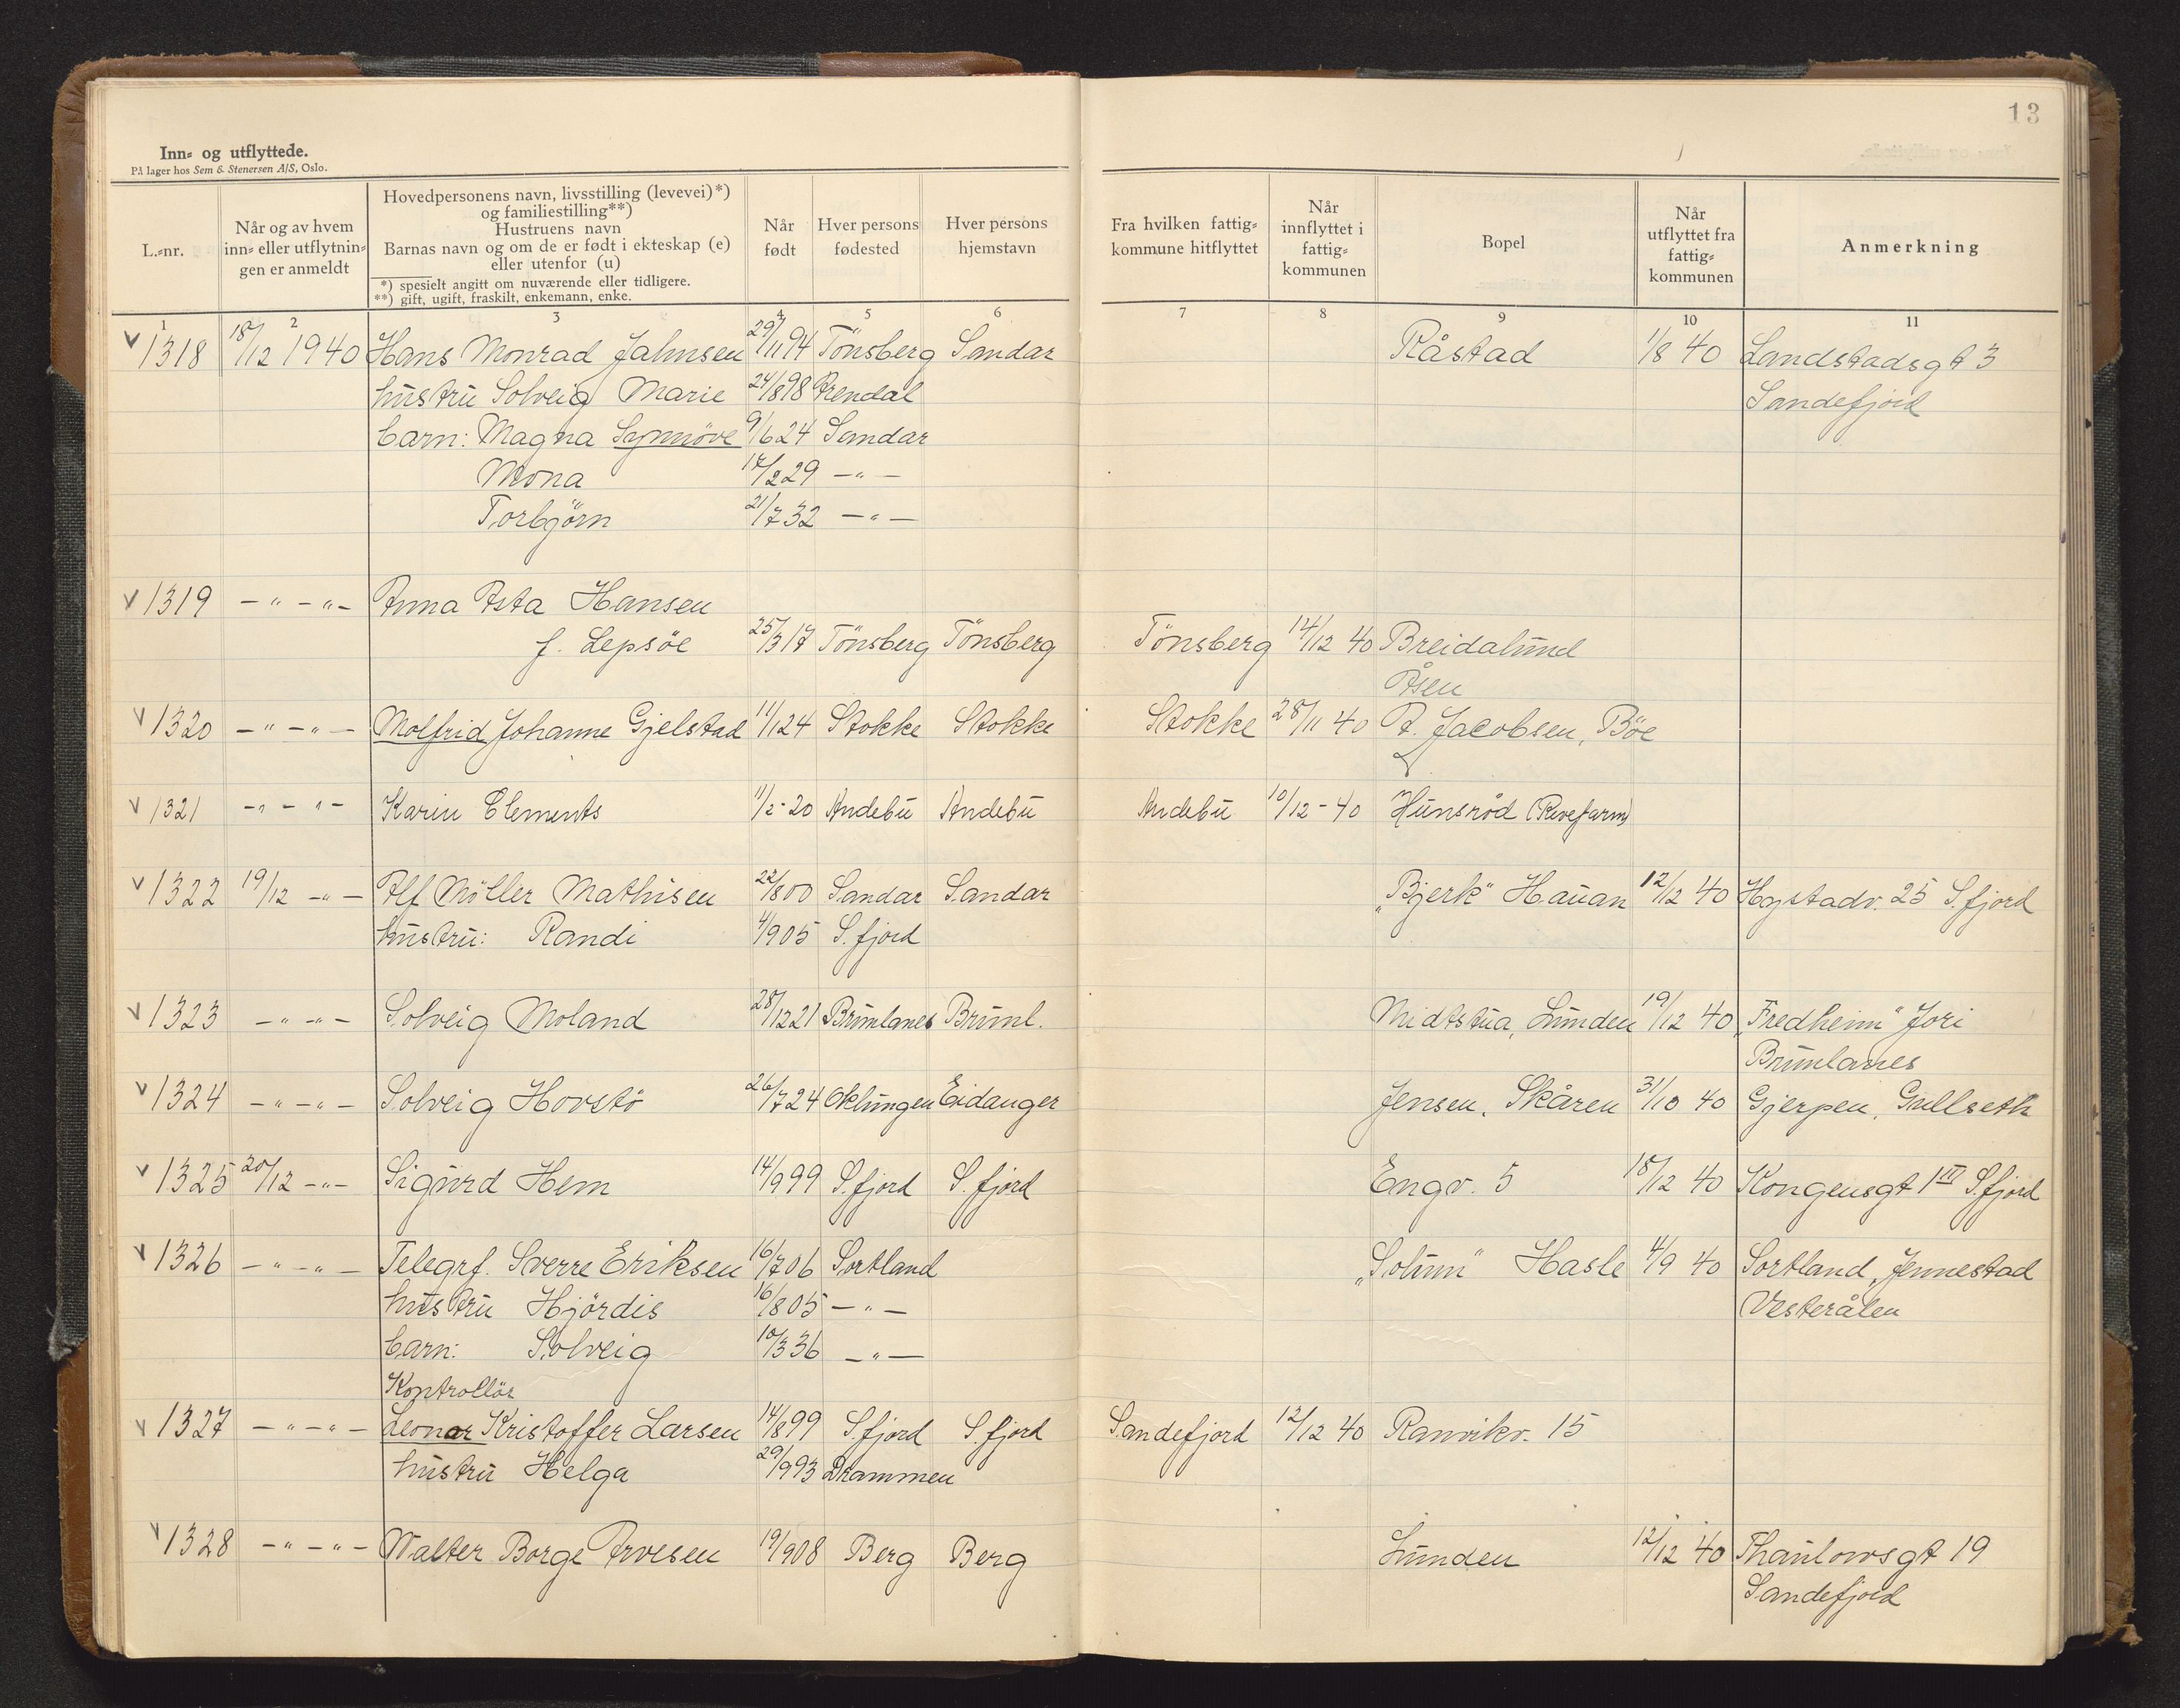 13
Inn- og utflyttede.
På lager hos Sem & Stenersen A/S, Oslo.
L.-nr.
Når og av hvem
inn- eller utflytnin-
gen er anmeldt
Hovedpersonens navn, livsstilling (levevei)*)
og familiestilling**)
Hustruens navn
Barnas navn og om de er født i ekteskap (e)
eller utenfor (u)
*) spesielt angitt om nuværende eller tidligere.
**) gift, ugift, fraskilt, enkemann, enke.
Når
født
Hver persons
fødested
Hver persons
hjemstavn
Fra hvilken fattig-
kommune hitflyttet
Når
innflyttet i
fattig-
kommunen
Bopel
Når
utflyttet fra
fattig-
kommunen
Anmerkning
1 2 3 4 5 6 7 8 9 10 11
v 1318 18/12 1940 Hans Monrad Jahnsen 29/11 94 Tönsberg Sandar Råstad 1/8 40 Landstadsgt 3
hustru Solveig Marie 24/8 98 Arendal Sandefjord
barn: Magna Synnöve 9/6 24 Sandar
Mona 17/2 29 -"-
Torbjörn 21/7 32 -"-
v 1319 -"-"- Anna Asta Hansen
f. Lepsöe 25/3 17 Tönsberg Tönsberg Tönsberg 14/12 40 Breidalund
Åsen
v 1320 -"-"- Molfrid Johanne Gjelstad 11/1 24 Stokke Stokke Stokke 28/11 40 A. Jacobsen, Böe
v 1321 -"-"- Karin Clements 11/2-20 Andebu Andebu Andebu 10/12-40 Hunsröd (Revefarm)
v 1322 19/12 -"- Alf Möller Mathisen 22/8 00 Sandar Sandar „Bjerk" Hauan 12/12 40 Hystadv. 25 S.fjord
hustru: Randi 4/9 05 S.fjord
v 1323 -"-"- Solveig Moland 28/12 21 Brunlanes Brunl. Midtstua, Lunden 19/12 40 „Fredheim" Jori
Brunlanes
v 1324 -"-"- Solveig Hovstö 26/7 24 Oklungen Eidanger Jensen, Skåren 31/10 40 Gjerpen, Gullseth
v 1325 20/12 -"- Sigurd Hem 14/9 99 S.fjord S.fjord Engv. 5 18/12 40 Kongensgt 1 III S.fjord
v 1326 -"-"- Telegrf. Sverre Eriksen 16/7 06 Sortland „Solum" Hasle 4/9 40 Sortland, Jennestad
hustru Hjördis 16/8 05 -"- Vesterålen
barn: Solveig 10/3 36 -"-
Kontrollör
v 1327 -"-"- Leonar Kristoffer Larsen 14/8 99 S.fjord S.fjord Sandefjord 12/12 40 Ranvikv. 15
hustru Helga 29/9 93 Drammen
v 1328 -"-"- Walter Borge Arvesen 19/9 08 Berg Berg Lunden 12/12 40 Thaulowsgt 19
Sandefjord